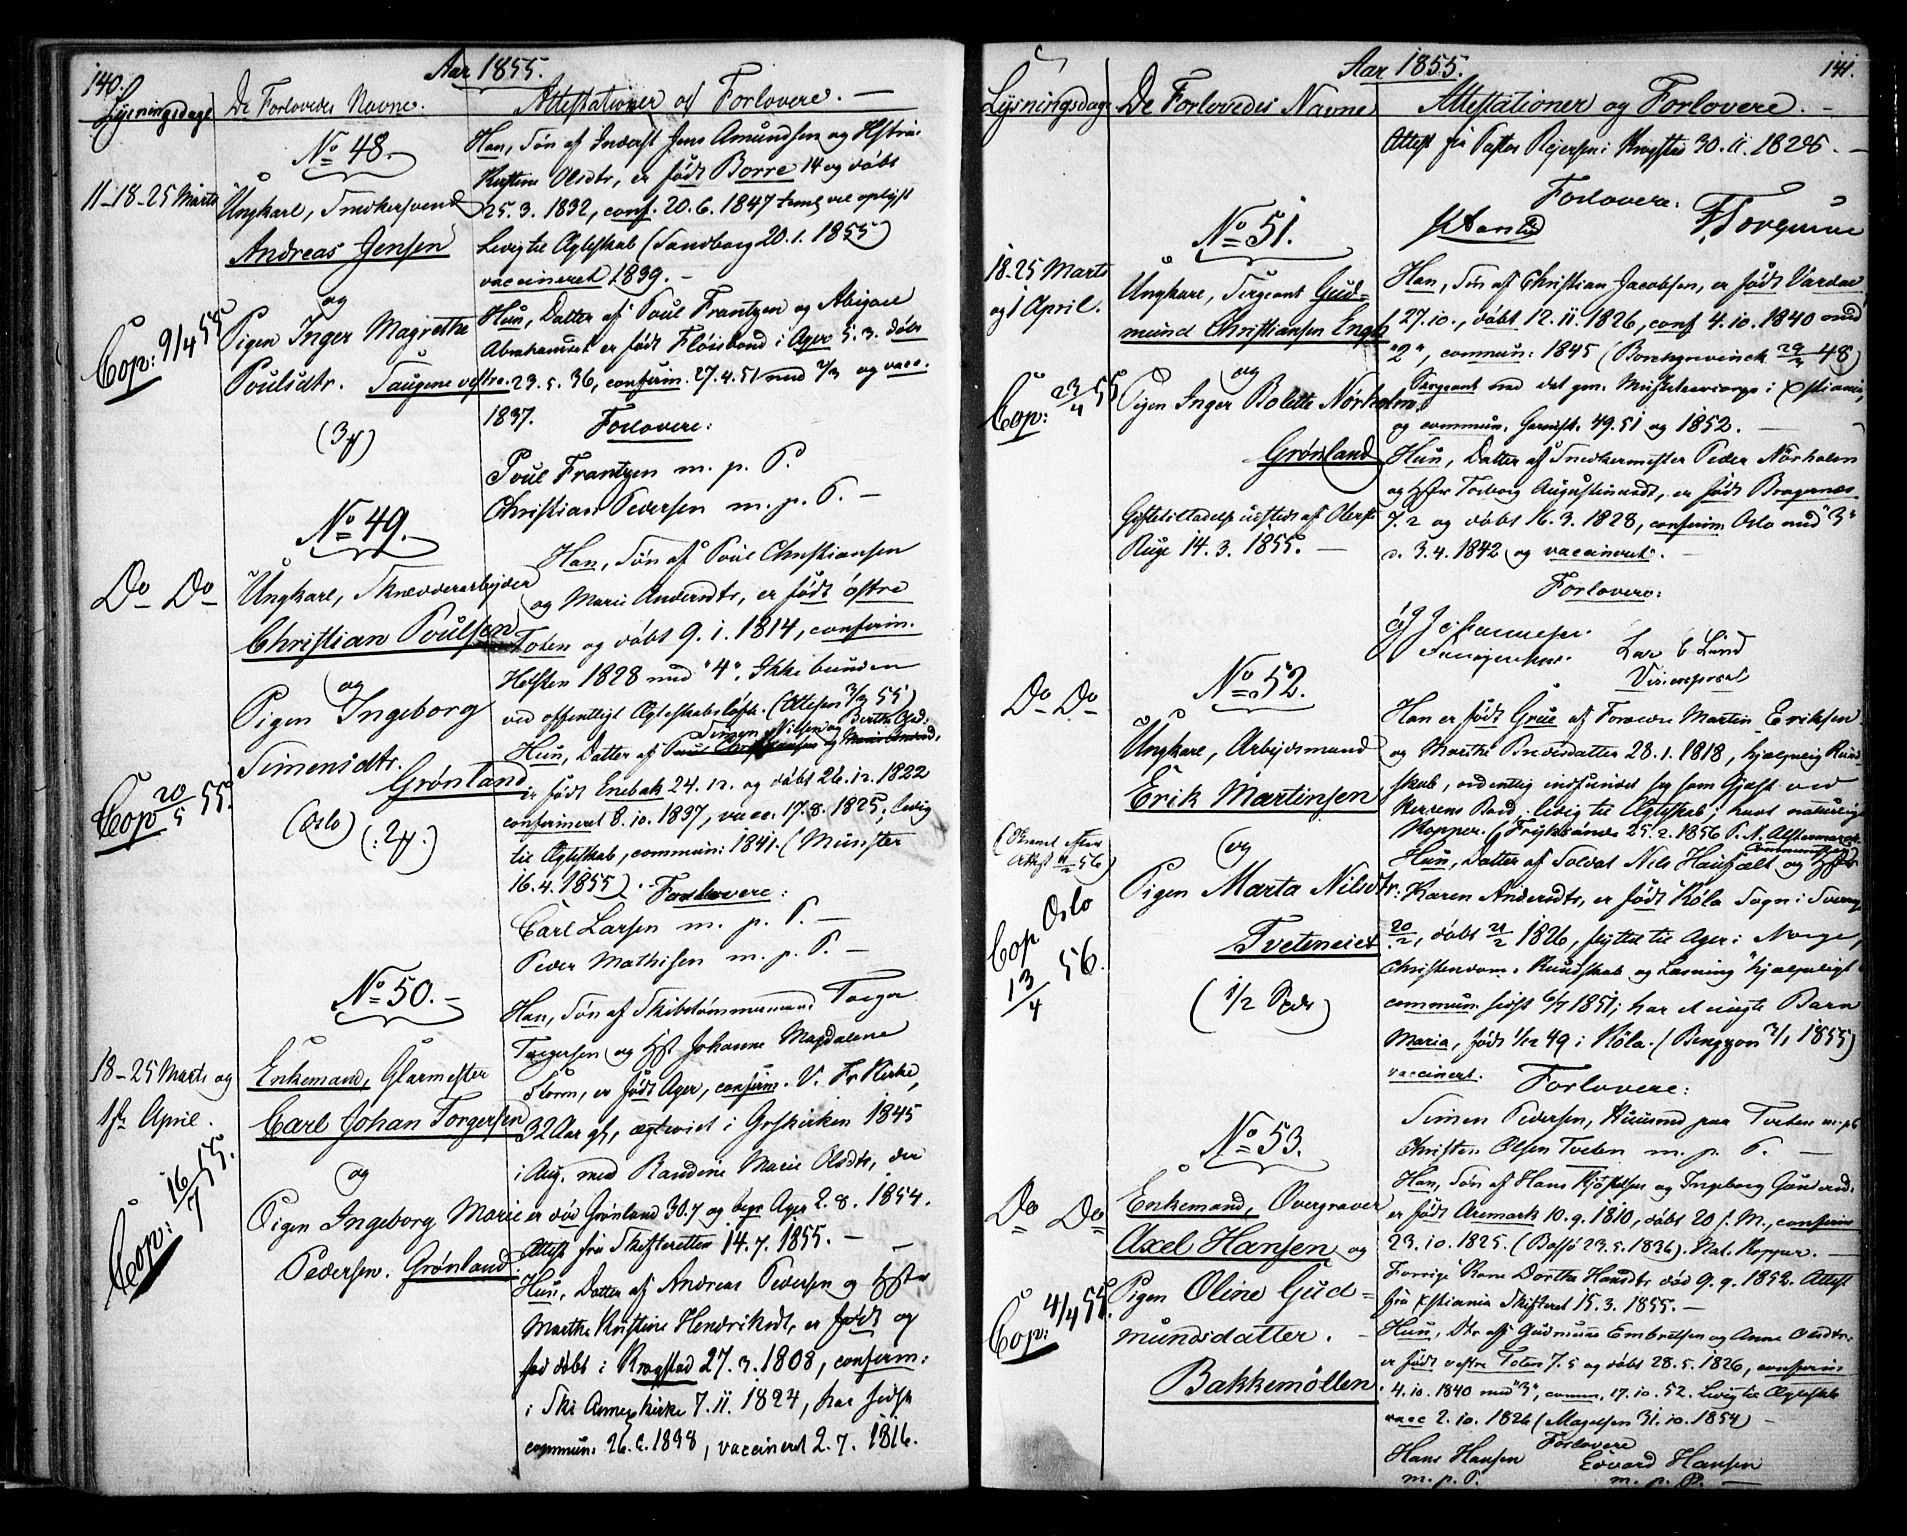 140.
Aar 1855.
Lysningsdage
De Forlovedes Navne.
Attestationer og Forlovere. —
No 48.
11-18-25 Marts
Ungkarl, Snedkersvend
Andreas Jensen
og
Pigen Inger Magrethe
Poulsdtr.
Cop: 9/4 55
(3 )
Han, Søn af Inderst Jens Amundsen og Hstru
Kirstine Olsdtr, er født Borre 14 og døbt
25. 3. 1832, conf. 20. 6. 1847 samt vel oplyst
Ledig til Ægteskab (Sandberg 20. 1. 1855)
vaccineret 1839. —
Hun, Datter af Poul Frantzen og Abigael
Abrahamsdt er født Fløisbond i Ager 5. 3. døbt
23. 5. 36, confirm. 27. 4. 51 med og vacc.
1837. Forlovere:
Poul Frantzen m. p. P.
Christian Pedersen m. p. P. —
No 49.
Do Do
Ungkarl, Skrædderarbejder
Christian Poulsen
og
Pigen Ingeborg
Simensdtr.
Grønland
(Oslo) (: 2 :)
Cop 20/5 55.
Han, Søn af Poul Christiansen
og Marie Andersdtr, er født østre
Toten og døbt 9. 1. 1814, confirm.
Høsten 1828 med "4". Ikke bunden
ved offentligt Ægteskabsløfte. (Attesten 3/3 55)
Simen Nilsen og Berthe And:
Hun, Datter af
er født Enebak 24. 12. og døbt 26. 12. 1822
confirmeret 8. 10. 1837, vacc. 17. 8. 1825, ledig
til Ægteskab, commun: 1841. (Münster
16. 4. 1855). Forlovere:
Carl Larsen m. p. P. —
Peder Mathisen m. p. P. —
No 50. —
18-25 Marts og
1ste April.
Enkemand, Glarmester
Carl Johan Torgersen
og
Pigen Ingeborg Marie
Pedersen. Grønland.
Cop: 16/7 55.
Han, Søn af Skibstømmermand Torger
Torgersen og Hst Johanne Magdalene
Storm, er født Ager, confirm. V. Fr Kirke,
32 Aar gl, ægteviet i Grskirken 1845
i Aug. med Randine Marie Olsdtr, der
er død Grønland 30. 7 og begr Ager 2. 8. 1854.
Attest fra Skifteretten 14. 7. 1855. —
Hun, Datter af Andreas Pedersen og Hstr
Marthe Kirstine Hendriksdt, er født og
døbt i Kragstad 27. 3. 1808, confirm:
i Ski Annexkirke 7. 11. 1824, har sidst
commun: 26. 1838, vaccineret 2. 7. 1816.
141.
Aar 1855.
Lysningsdage
De Forlovedes Navne
Attestationer og Forlovere. —
Attest fra Pastor Rejersen i Kragstad 30. 11. 1828. —
Forlovere:
F. Torgersen
No 51.
18-25 Marts
og 1 April.
Ungkarl, Sergeant Gud=
mund Christiansen Engh
og
Pigen Inger Bolette Nørholm.
Grønland
Cop: 23/4 55
Giftetilladelse udstedt af Oberst
Ruge 14. 3. 1855. —
Han, Søn af Christian Jacobsen, er født Vardal
27. 10., døbt 12. 11. 1826, conf 4. 10. 1840 med
"2", commun: 1845 (Borchgrevinck 29/3 48)
Sergeant ved det gen. Musketeercorps i Xstiania,
og commun. Garnisk. 49. 51 og 1852. —
Hun, Datter af Snedkermester Peder Nørholm
og Hstr Torborg Augustinusdt, er født Bragernæs
7. 2 og døbt 16. 3. 1828, confirm. Oslo med "3"
d. 3. 4. 1842 og vaccineret. —
Forlovere:
Lar E Lund
No 52.
Do Do
Ungkarl, Arbejdsmand
Erik Martinsen
og
Pigen Marta Nilsdtr:
Tveteneiet
(1/2 Spdr)
Cop Oslo
13/4 56.
Han er født Grue af Forældre Martin Eriksen
og Marthe Pedersdatter 28. 1. 1818, hjælpelig Kund
skab, ordentlig indfundet sig som Gjæst ved
Herrens Bord; ledig til Ægteskab; havt naturlige
Kopper. (Frykksände 25. 2. 1856 P. N.
Hun, Datter af Soldat Nils Haufsælt og Hstr
Karen Andersdtr, er født Köla Sogn i Sverige
20/2, døbt 21/2 1826, flyttet til Ager i Norge,
Christendoms Kundskab og Læsning "hjælpeligt"
commun. sidst 6/7 1851; har et uægte Barn
Maria, født 1/12 49 i Köla. (Bengzon 3/1 1855)
vaccinert. Forlovere:
Simen Pedersen, Huusmd paa Tveten m. p P
Christen Olsen Tveten m. p. P. —
No 53.
Do Do
Enkemand, Overgraver
Axel Hansen og
Pigen Oline Gud=
mundsdatter. —
Bakkemøllen.
Cop: 4/4 55.
Han, Søn af Hans og Ingeborg
er født Aremark 10. 9. 1810, døbt 20 s. M., confirm
23. 10. 1825. (Bassø 23. 5. 1836). Nat. Kopper. —
Forrige Kone Dorthe Hansdtr død 9. 9. 1852. Attest
fra Xstiania Skifteret 15. 3. 1855. —
Hun, Dtr af Gudmund Embretsen og Anne Olsdtr:
er født vestre Toten 7. 5 og døbt 28. 5. 1826, confirm
4. 10. 1840 med "3", comm. 17. 10. 52. Ledig til Ægteskab
vacc 2. 10. 1826 (Magelsen 31. 10. 1854) —
Forlovere
Hans Hansen Edvard Hansen
m. p. P. m. p. P. —